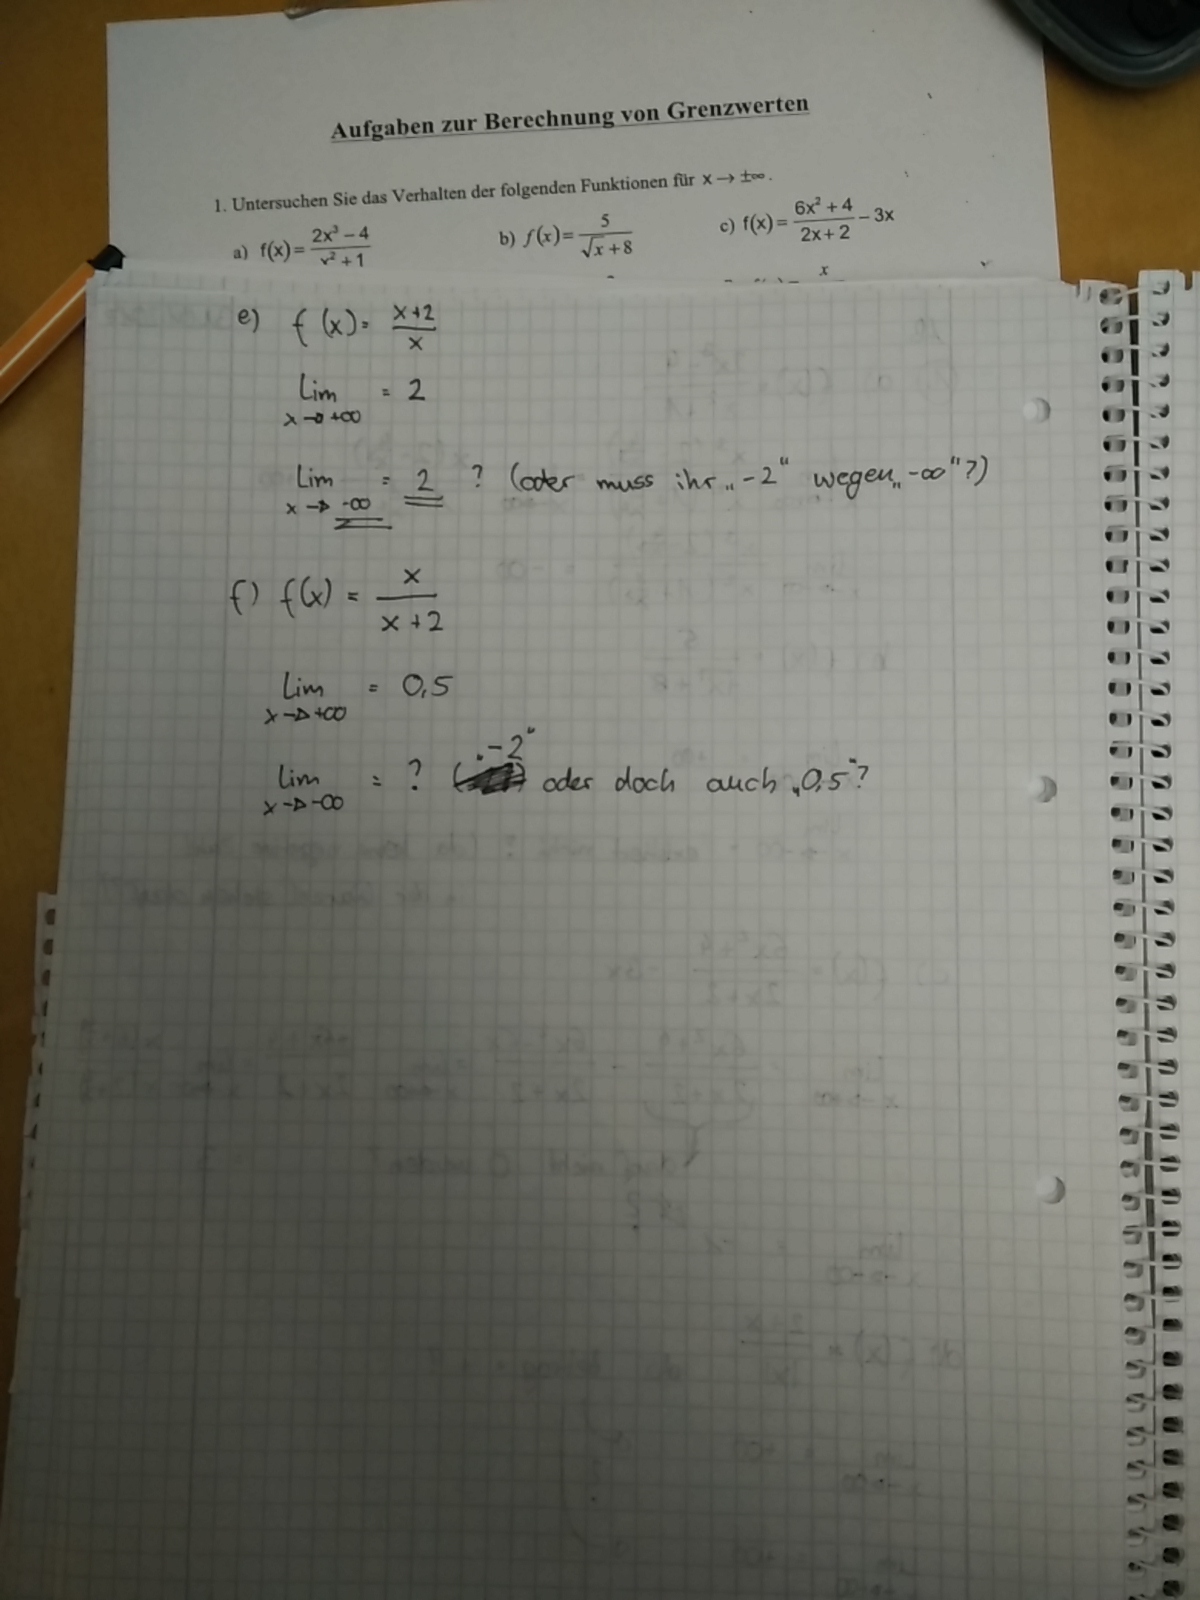 Aufgaben zur Berechnung von Grenzwerten
1. Untersuchen Sie das Verhalten der folgenden Funktionen für x → ±∞.
a) f(x) = (2x³ − 4)/(x² + 1) b) f(x) = 5/(√x + 8) c) f(x) = (6x² + 4)/(2x + 2) − 3x
x
e) f(x) = (x+2)/x
Lim x→+∞ = 2
Lim x→-∞ = 2 ? (oder muss ihr „-2“ wegen „-∞“?)
f) f(x) = x/(x+2)
Lim x→+∞ = 0,5
Lim x→-∞ = ? „-2“ oder doch auch „0,5“?